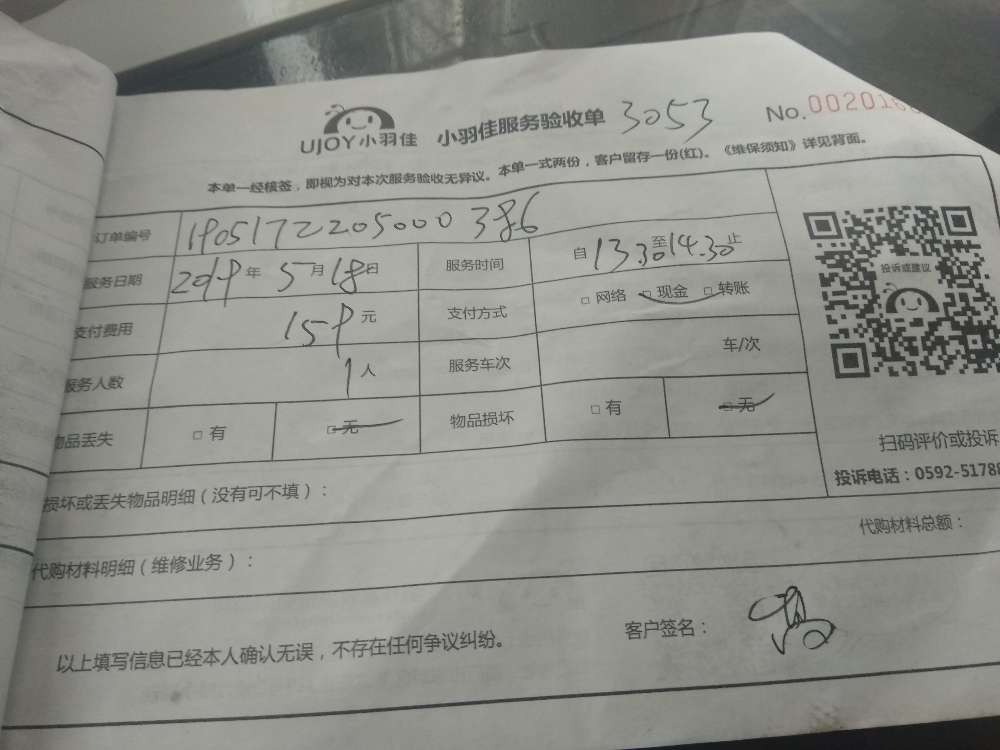 UJOY小羽佳 小羽佳服务验收单 3053 No.002016
本单一经核签，即视为对本次服务验收无异议。本单一式两份，客户留存一份(红)。《维保须知》详见背面。
订单编号 19051722205000386
服务日期 2019年5月18日 服务时间 自13.30至14.30止
支付费用 159元 支付方式 □网络 □现金 □转账
服务人数 1人 服务车次 车/次
物品丢失 □有 □无 物品损坏 □有 □无
投诉或建议
扫码评价或投诉
投诉电话：0592-51788
损坏或丢失物品明细（没有可不填）：
代购材料明细（维修业务）： 代购材料总额：
以上填写信息已经本人确认无误，不存在任何争议纠纷。 客户签名：